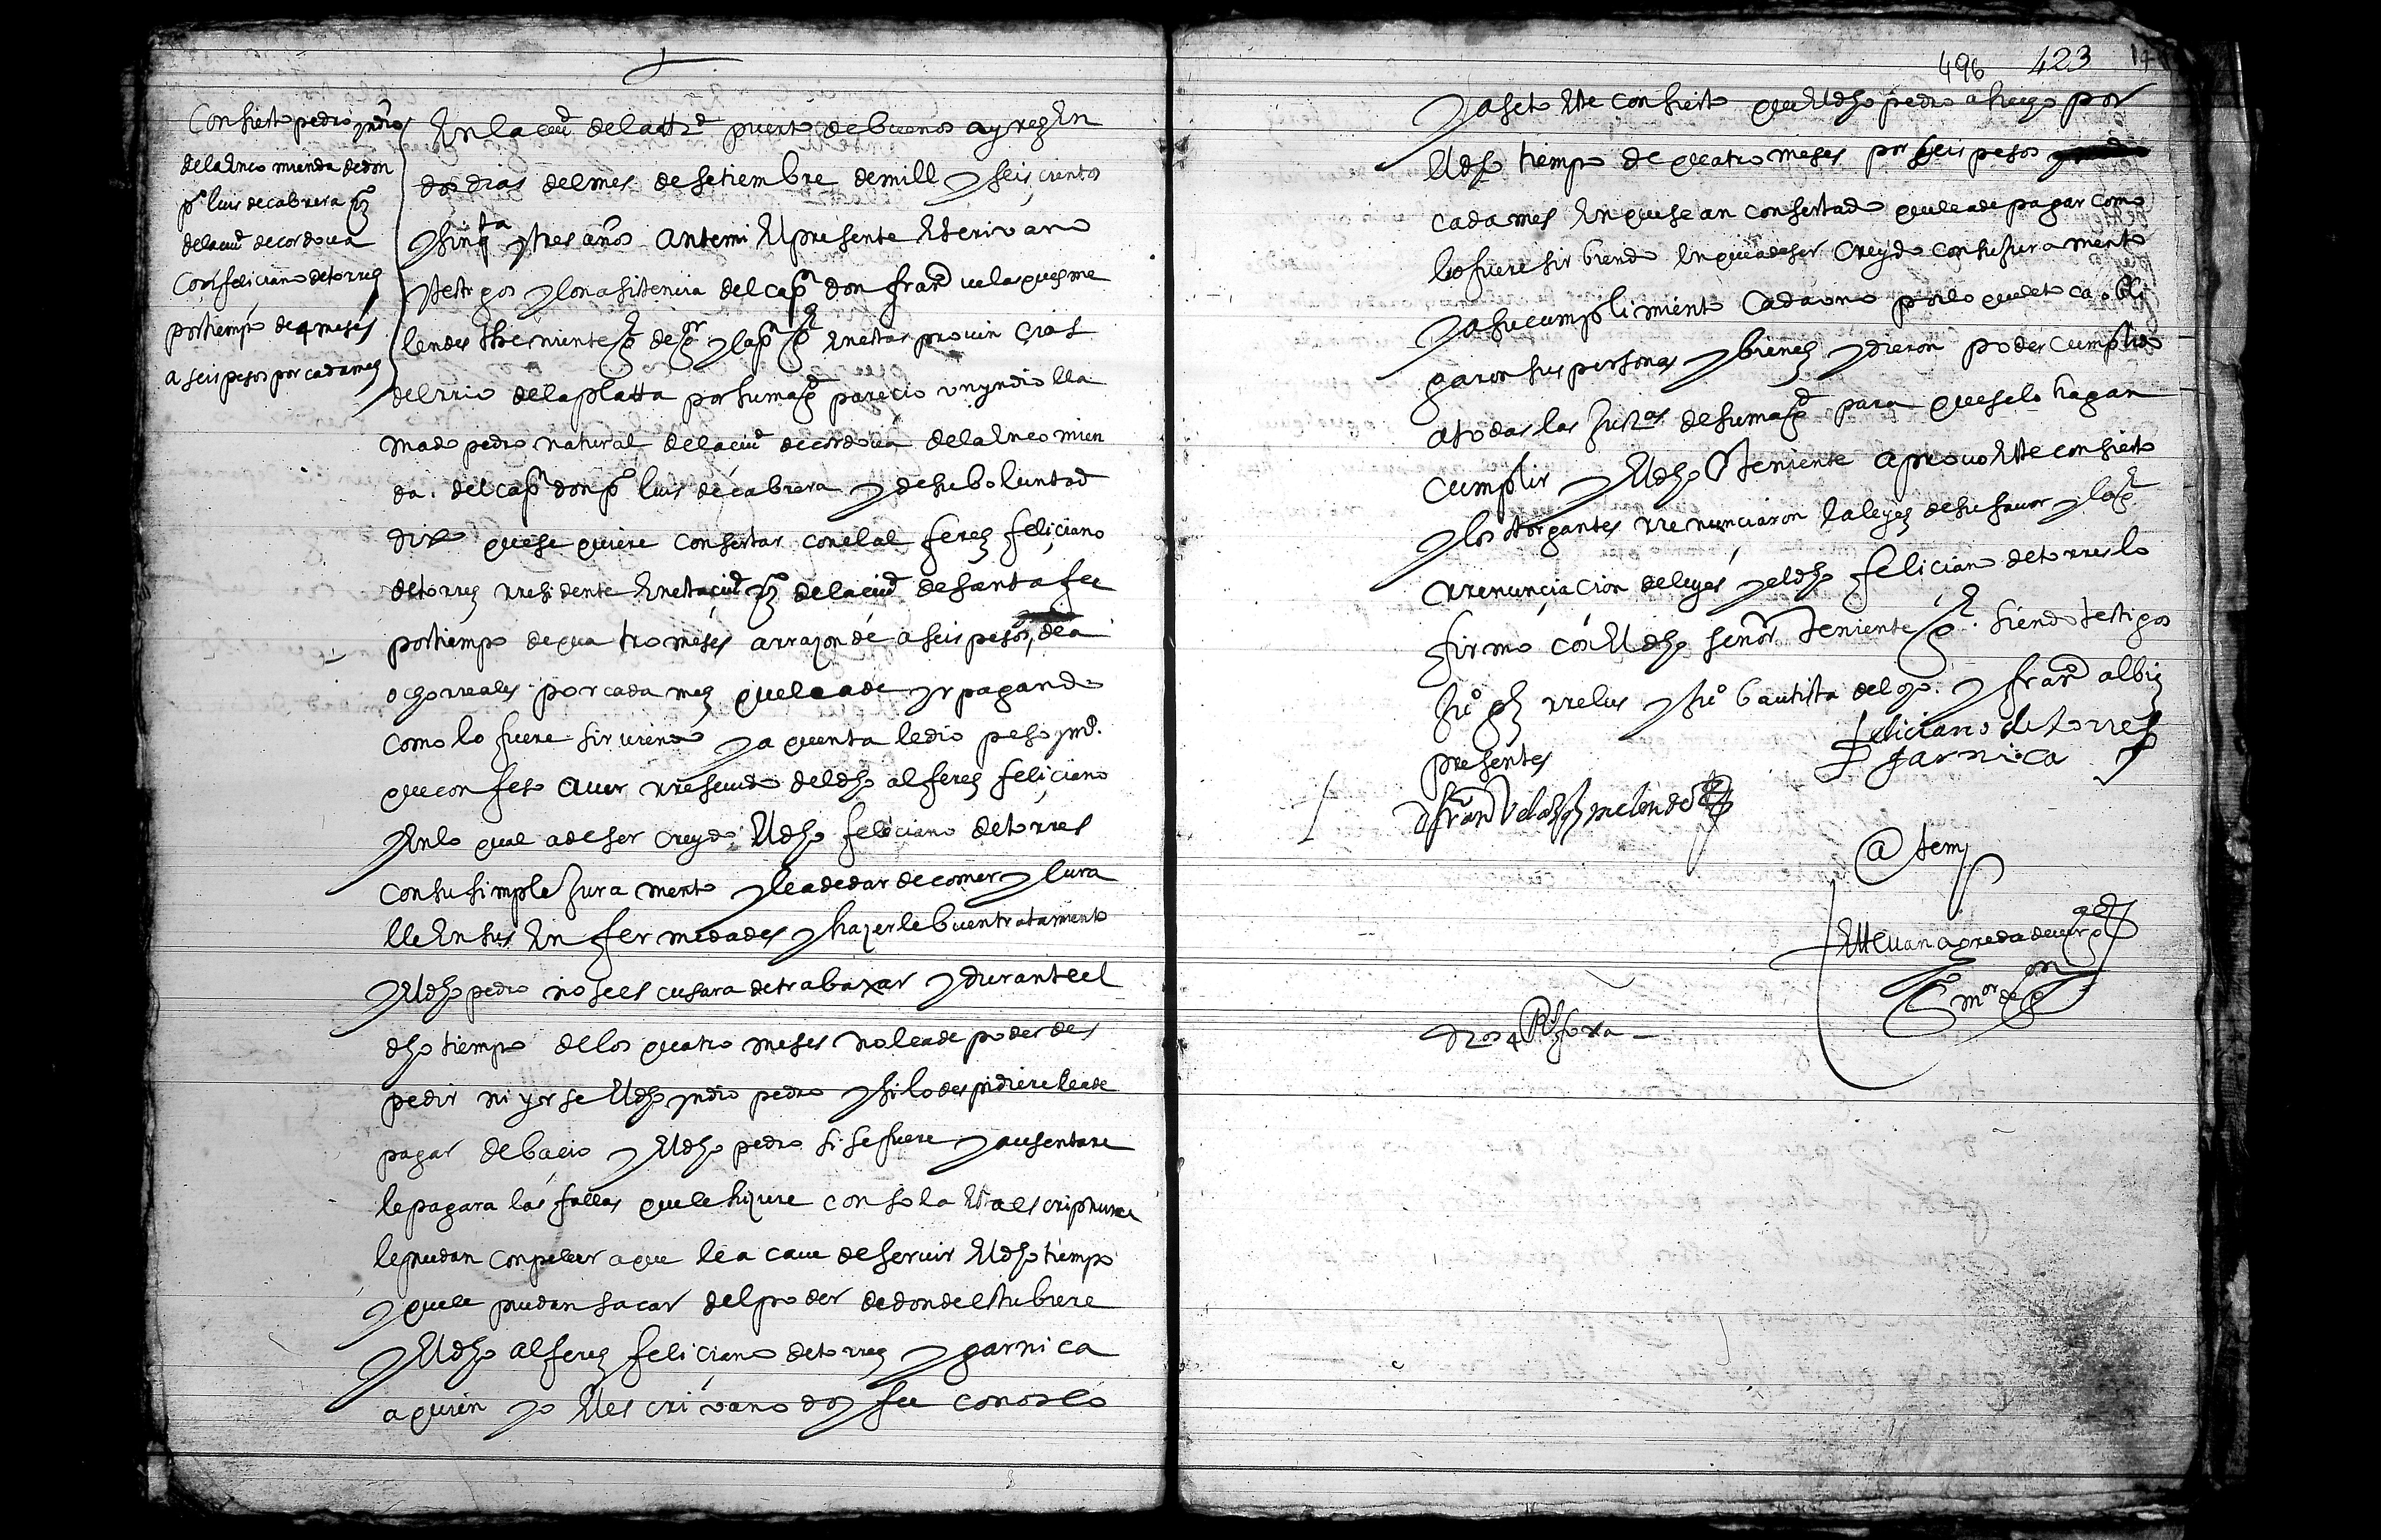 Consierto pedro yndio
de la encomienda de don
po luis de cabrera vzo
de la ciud de cordova
Con feliciano de torres
por tiempo de 4 meses
a seis pesos por cada mes
En la ciud de la ttrd puerto de buenos ayres En
dos dias del mes de setiembre de mill y seis cientos
y sinqta y tres años antemi El presente Escrivano
y testigos y con asistencia del capn don franco velasques me
lendes theniente gl de gor y capn gl en estas provincias
del rrio de la platta por su magd parecio un yndio lla
mado pedro natural de la ciud de cordova de la encomien
da del capn don po luis de cabrera y de su boluntad
dixo que se quiere consertar con el alferes feliciano
de torres rresidente en esta ciud vzo de la ciud de santa fee
por tiempo de quatro meses a rrazon de a seis pesos de a
ocho rreales por cada mes que le a de yr pagando
como lo fuere sirviendo y a quenta le dio peso y mo.
que confeso aver rresevido del dho alferes feliciano
y En lo qual a de ser creydo El dho feliciano de torres
con su simple Juramento y le a de dar de comer y cura
lle En sus Enfermedades y hazerle buen tratamiento
y El dho pedro no se escusara de trabaxar y durante el
dho tiempo de los quatro meses no le a de poder des
pedir ni yrse El dho yndio pedro y si lo despidiere le a de
pagar de bacio y El dho pedro si se fuere y ausentare
le pagara las fallas que le hiziere con sola Esta escriptura
le puedan conpeler a que le acave de servir El dho tiempo
y que le puedan sacar del poder de donde estubiere
y El dho alferes feliciano de torres y garnica
a quien yo El escrivano doy fee conosco
496 423
y aseto Este consierto que El dho pedro a hecho por
El dho tiempo de quatro meses por seis pesos
cada mes En que se an consertado que le a de pagar como
lo fuere sirbiendo En que a de ser creydo con su Juramento
y a su cumplimiento Cada uno por lo que le toca obli
garon sus personas y bienes y dieron poder cumplido
a todas las Justas de su magd para que se lo hagan
cumplir y El dho teniente aprovo Este consierto
y los otorgantes rrenunciaron la leyes de su favor y la gl
rrenunciacion de leyes y el dho feliciano de torres lo
firmo con El dho señor teniente gl. siendo testigos
Juo gs rrelus y Juo bautista del . y franco albis
presentes
feliciano de torres
garnica
D fran Velazqz melendez
Ante mi
Esteuan agreda de vergara